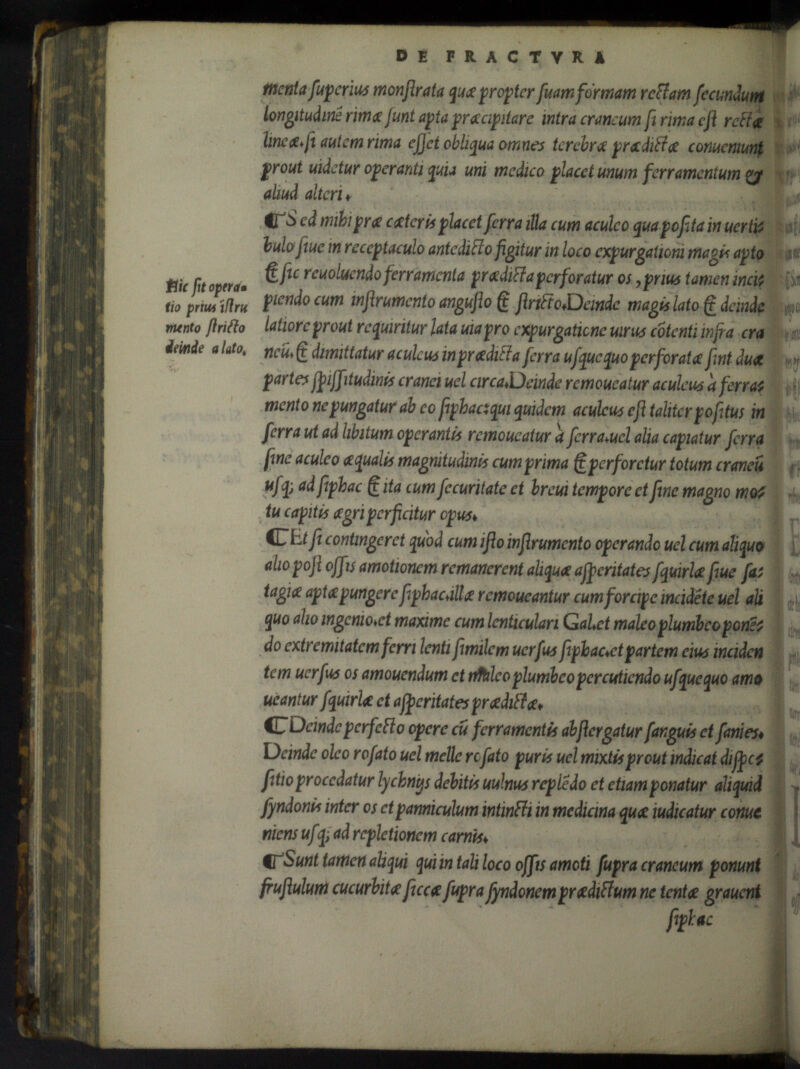 DE FRACTVRA
menta superius monstrata quæ propter suam formam rectam secundum
longitudinē rimæ sunt apta præcipitare intra craneum si rima est rectæ
lineæ. si autem rima esset obliqua omnes terebræ prædictæ conueniunt
prout uidetur operanti quia uni medico placet unum ferramentum &
aliud alteri.
¶ Sed mihi præ cæteris placet serra illa cum aculeo qua posita in uertiꝫ
bulo siue in receptaculo antedicto figitur in loco expurgationi magis apto
& sic reuoluendo ferramenta prædicta perforatur os, prius tamen inciꝫ
piendo cum instrumento angusto & stricto. Deinde magis lato & deinde
latiore prout requiritur lata uia pro expurgatione uirus cōtenti infra cra
neū. & dimittatur aculeus in prædicta serra usquequo perforatæ sint duæ
partes spissitudinis cranei uel circa. Deinde remoueatur aculeus a ferraꝫ
mento ne pungatur ab eo siphac: qui quidem aculeus est taliter positus in
serra ut ad libitum operantis remoueatur a serra. uel alia capiatur serra
sine aculeo æqualis magnitudinis cum prima & perforetur totum craneū
usq; ad siphac & ita cum securitate et breui tempore et sine magno moꝫ
tu capitis ægri perficitur opus.
¶ Et si contingeret quod cum isto instrumento operando uel cum aliquo
alio post ossis amotionem remanerent aliquæ asperitates squirlæ siue saꝫ
tagiæ aptæ pungere siphac. illæ remoueantur cum forcipe incidēte uel ali
quo alio ingenio. et maxime cum lenticulari Gal. et maleo plumbeo ponēꝫ
do extremitatem ferri lenti similem uersus siphac. et partem eius inciden
tem uersus os amouendum et maleo plumbeo percutiendo usquequo amo
ueantur squirlæ et asperitates prædictæ.
¶ Deinde perfecto opere cū ferramentis abstergatur sanguis et sanies.
Deinde oleo rosato uel melle rosato puris uel mixtis prout indicat dispoꝫ
sitio procedatur lychnijs debitis uulnus replēdo et etiam ponatur aliquid
syndonis inter os et panniculum intincti in medicina quæ iudicatur conue
niens usq; ad repletionem carnis.
¶ Sunt tamen aliqui qui in tali loco ossis amoti supra craneum ponunt
frustulum cucurbitæ siccæ supra syndonem prædictum ne tentæ grauent
siphac
Hic fit opera-
tio prius īstru
mento stricto
deinde a lato.